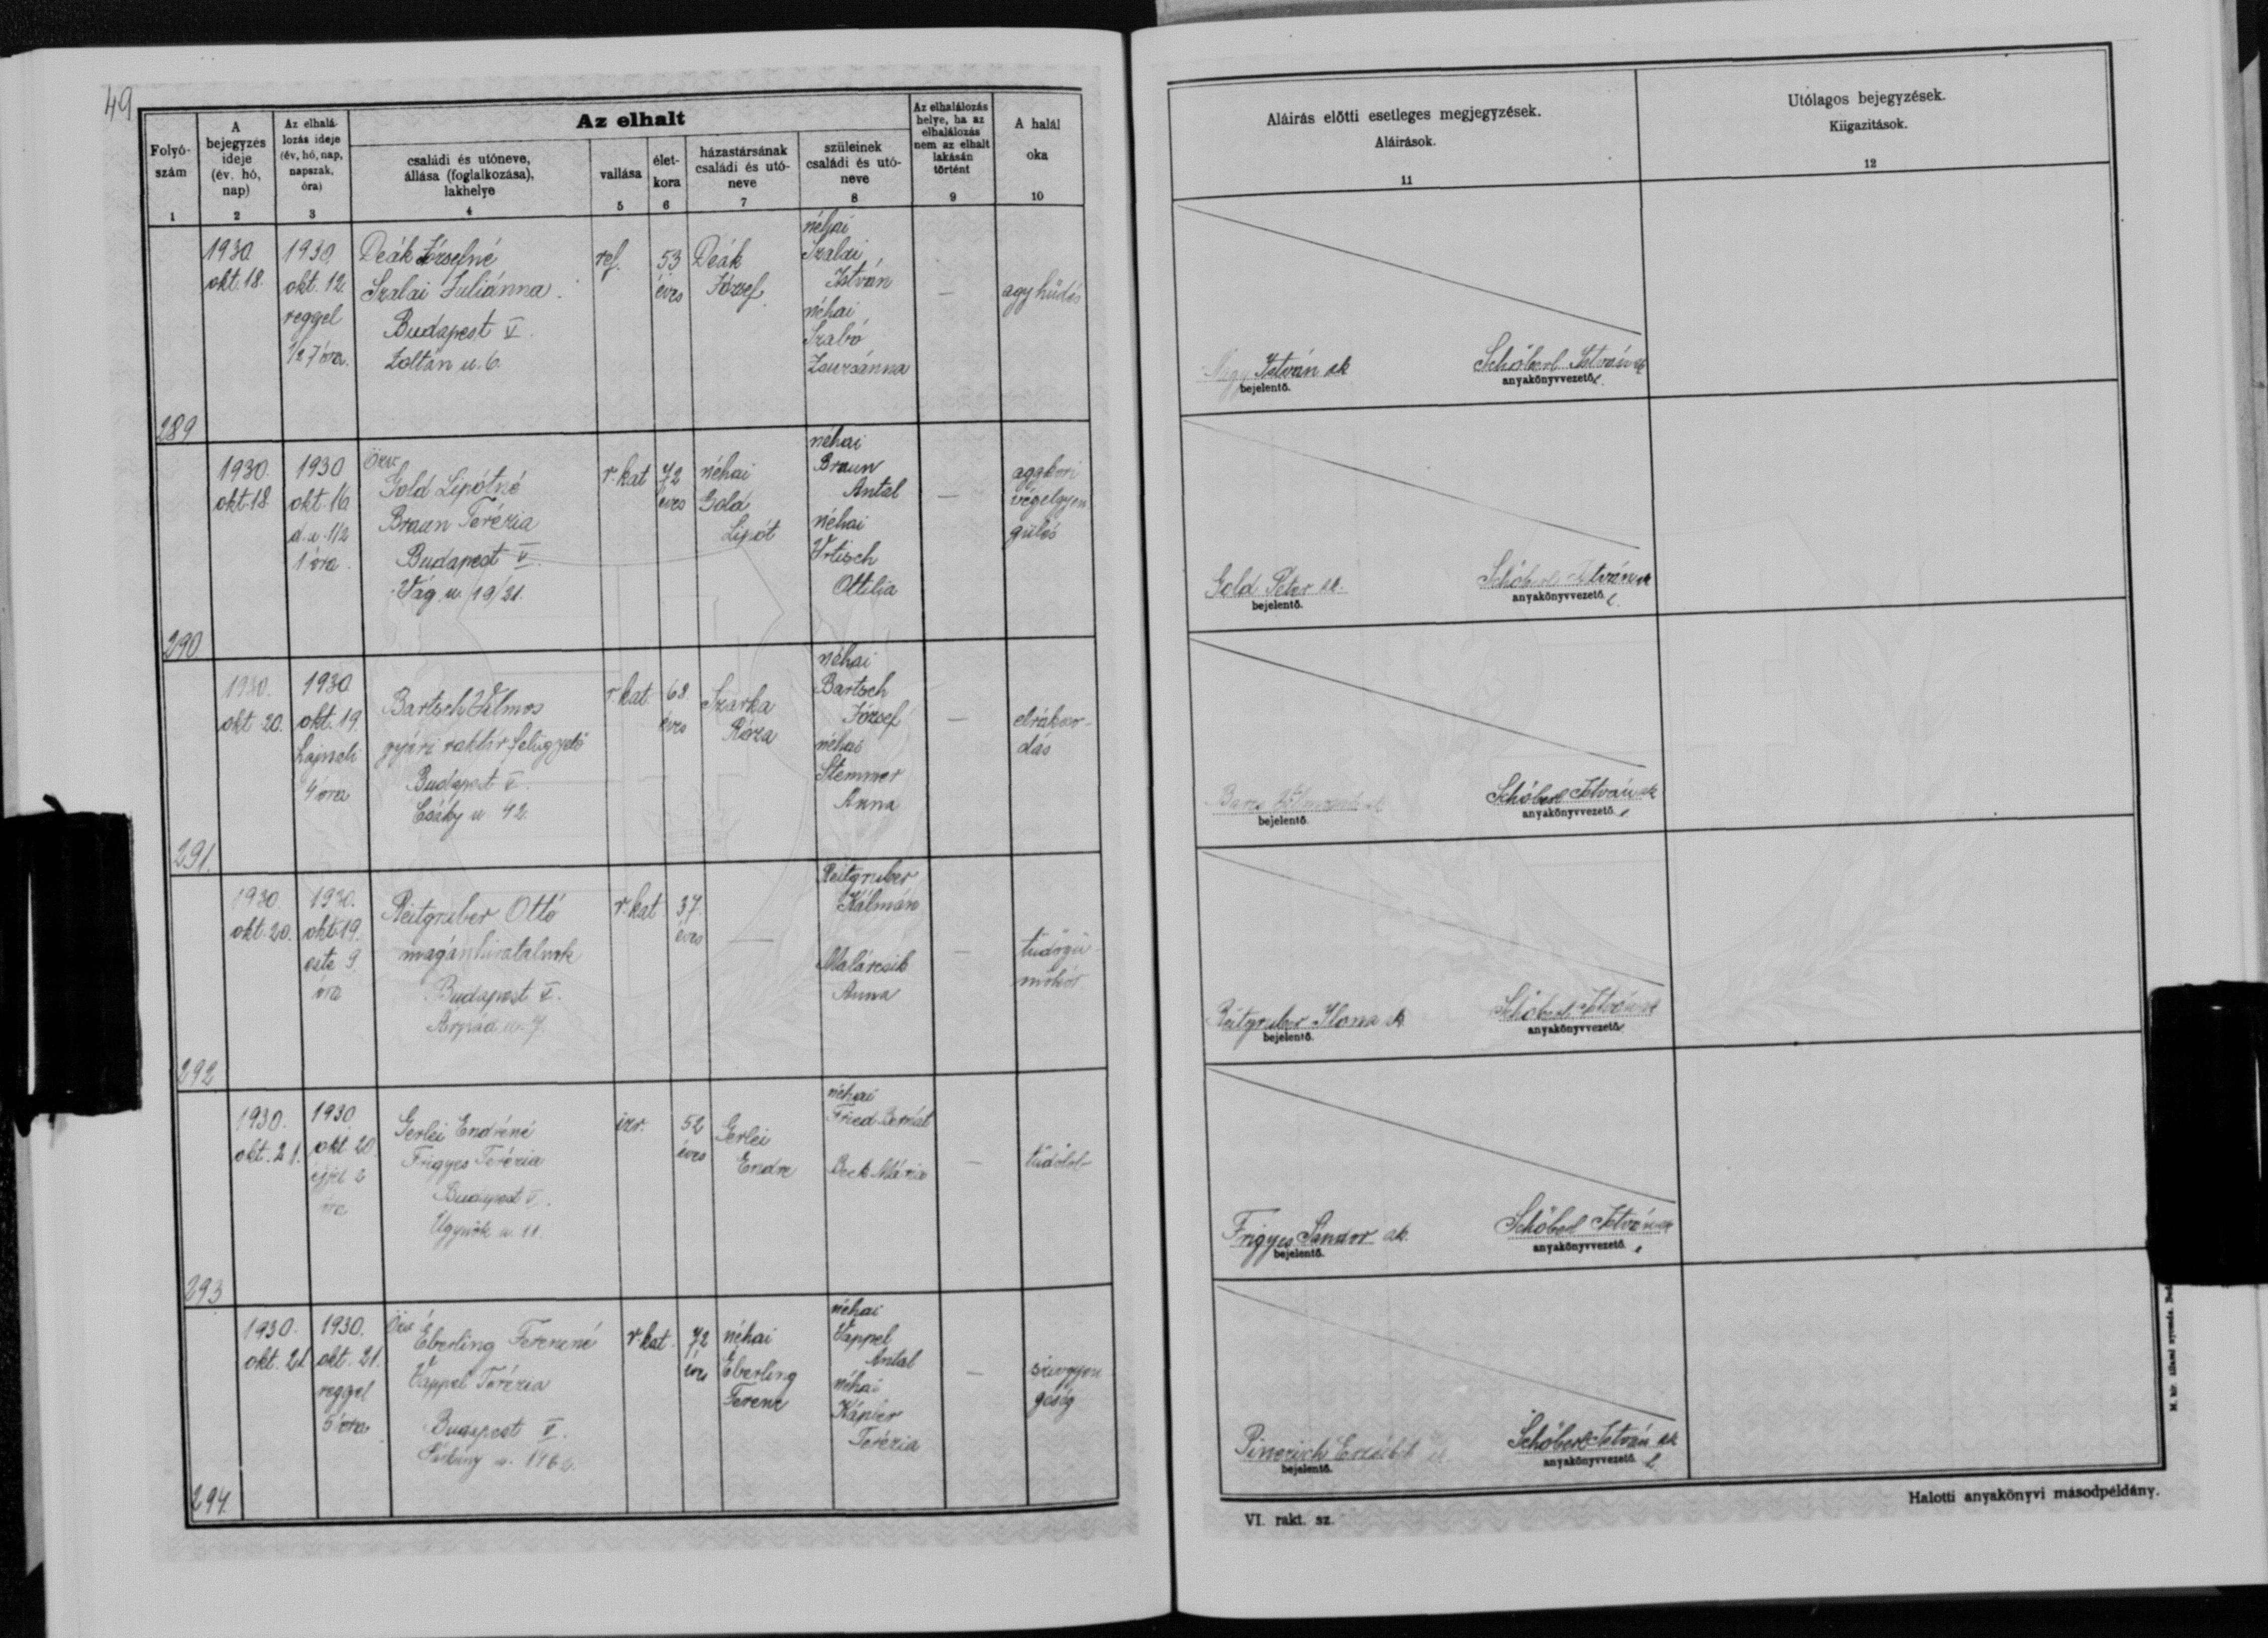 49
Folyó-
szám
1
A
bejegyzés
ideje
(év. hó,
nap)
2
Az elhalá-
lozás ideje
(év, hó, nap,
napszak,
óra)
3
Az elhalt
családi és utóneve,
állása (foglalkozása),
lakhelye
4
vallása
5
élet-
kora
6
házastársának
családi és utó-
neve
7
szüleinek
családi és utó-
neve
8
Az elhalálozás
helye, ha az
elhalálozás
nem az elhalt
lakásán
történt
9
A halál
oka
10
289
1930
okt. 18.
1930
okt. 12.
reggel
1/2 7 óra.
Deák Józsefné
Szalai Juliánna.
Budapest V.
Zoltán u. 6.
ref.
53
éves
Deák
József
néhai
Szalai
István
néhai
Szabó
Zsuzsánna
—
agyhüdés
290
1930.
okt. 18.
1930
okt. 16
d. u. 1/2
1 óra.
Özv.
Gold Lipótné
Braun Terézia
Budapest V.
Vág u. 19/21.
r. kat
72
éves
néhai
Gold
Lipót
néhai
Braun
Antal
néhai
Urtisch
Ottilia
—
aggkori
végelgyen
gülés
291.
1930.
okt 20.
1930
okt. 19.
hajnali
4 óra
Bartsch Vilmos
gyári raktár felügyelő
Budapest V.
Csáky u 42.
r. kat.
68.
éves
Szarka
Róza
néhai
Bartsch
József
néhai
Stemmer
Anna
—
elrákoso-
dás
292
1930.
okt. 20.
1930.
okt. 19.
este 9
óra
Reitgruber Ottó
magánhivatalnok
Budapest V.
Árpád u. 7.
r. kat
37.
éves
—
Reitgruber
Kálmán
Anna
—
tüdőgü-
mőkór
293
1930.
okt. 21.
1930
okt 20.
éjjel 2
óra
Gerlei Endréné
Frigyes Terézia
Budapest V.
Ügynök u. 11.
izr.
52
éves
Gerlei
Endre
néhai
Fried Bernát
Beck Mária
—
294.
1930.
okt. 21
1930.
okt. 21.
reggel
5 óra
Özv.
Eberling Ferencné
Vappel Terézia
Budapest V.
r. kat.
72
éves
néhai
Eberling
Ferenc
néhai
Vappel
Antal
néhai
Terézia
—
szivgyen
geség
Aláírás előtti esetleges megjegyzések.
Aláírások.
11
Utólagos bejegyzések.
Kiigazitások.
12
Nagy István sk
bejelentő.
Schöberl István sk
anyakönyvvezető
Gold Péter sk.
bejelentő.
Schöberl István sk
anyakönyvvezető
bejelentő.
Schöberl István sk
anyakönyvvezető
Reitgruber Ilona sk
bejelentő.
Schöberl István sk
anyakönyvvezető
Frigyes Sándor sk.
bejelentő.
Schöberl István sk
anyakönyvvezető
Erzsébet
bejelentő.
Schöberl István sk
anyakönyvvezető
VI. rakt. sz.
Halotti anyakönyvi másodpéldány.